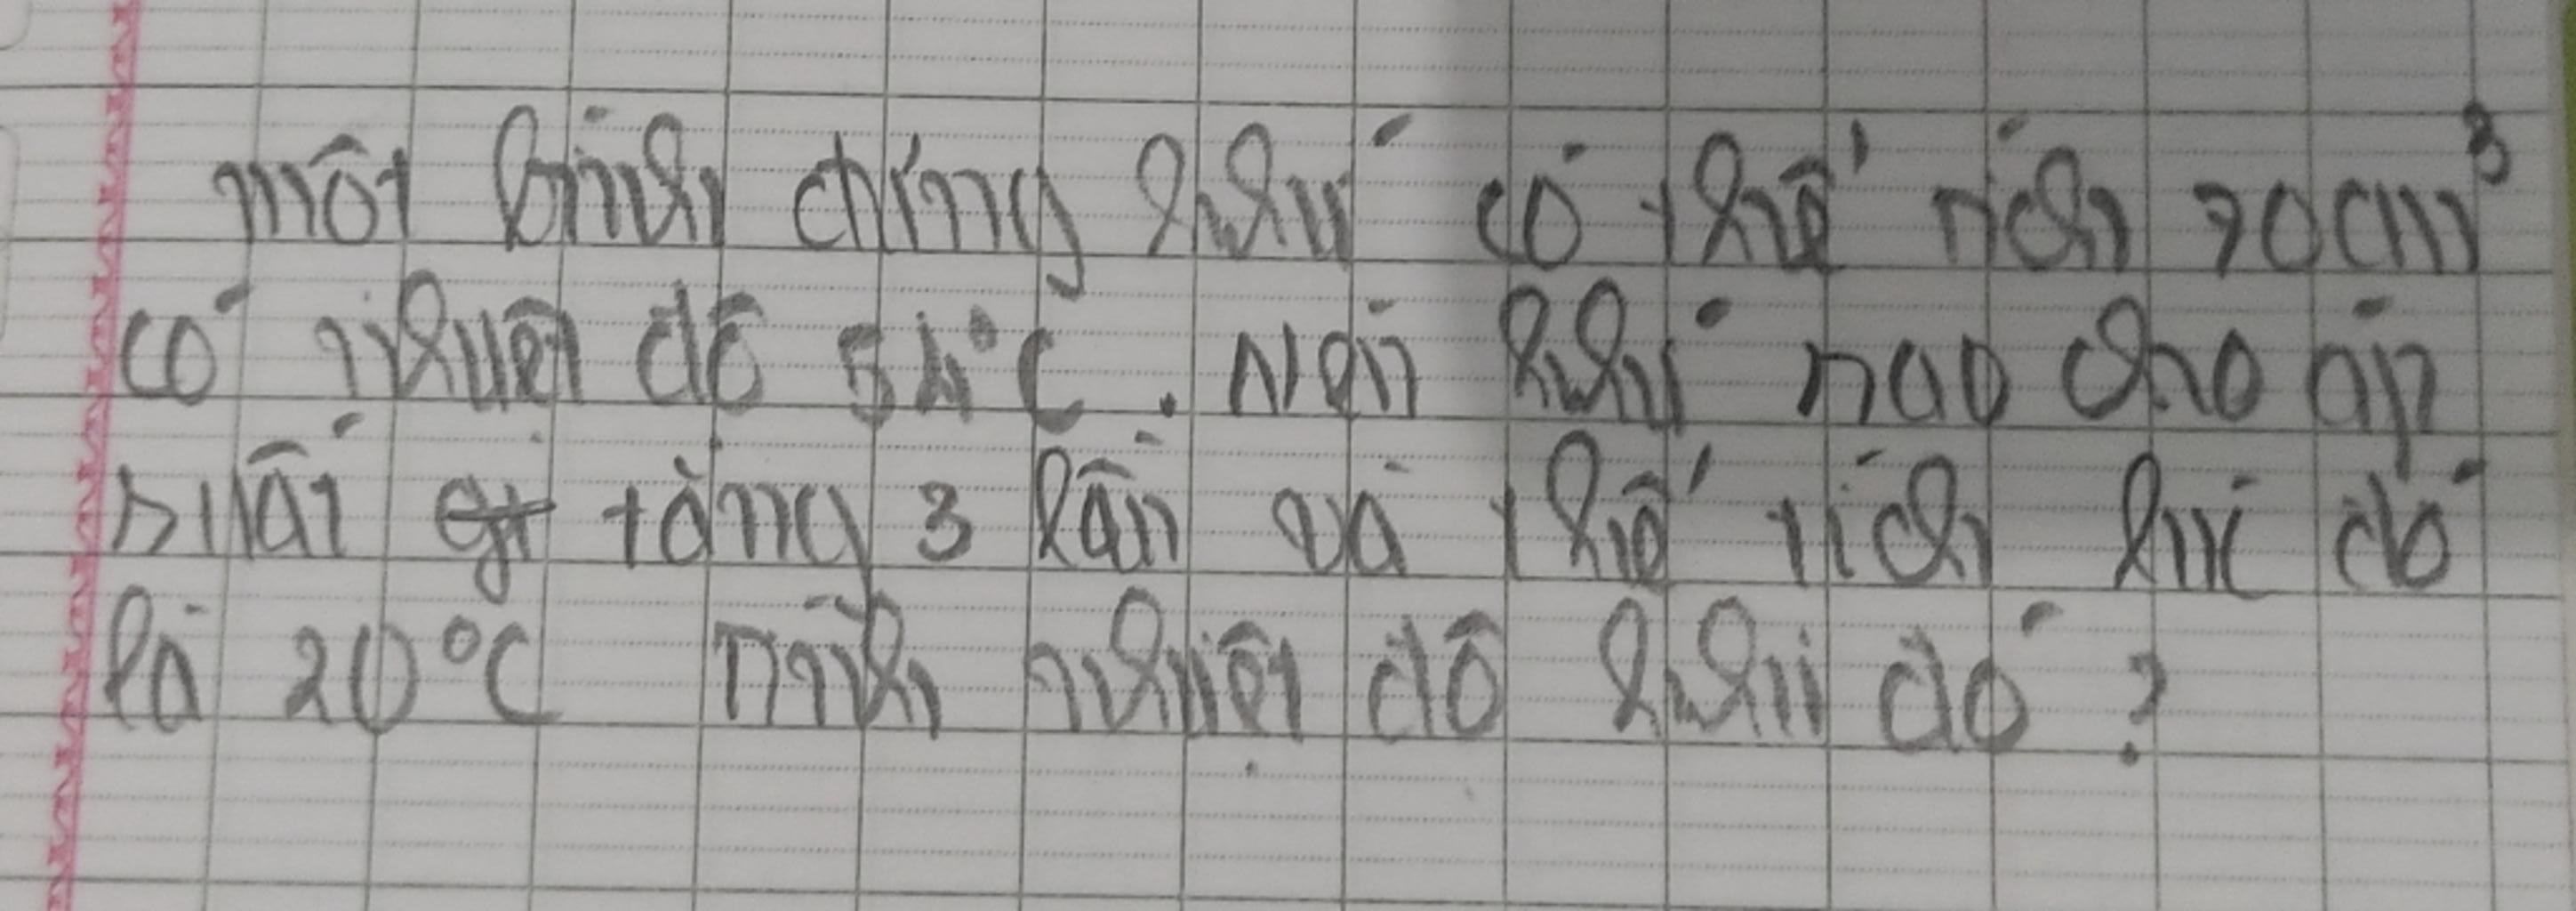 một bình chứng khí có thể tích 70cm³
có nhiệt độ 54°C. Nén khí sao cho áp
suất tăng 3 lần và thể tích khí đó
là 20°C Tính nhiệt độ khi đó ?